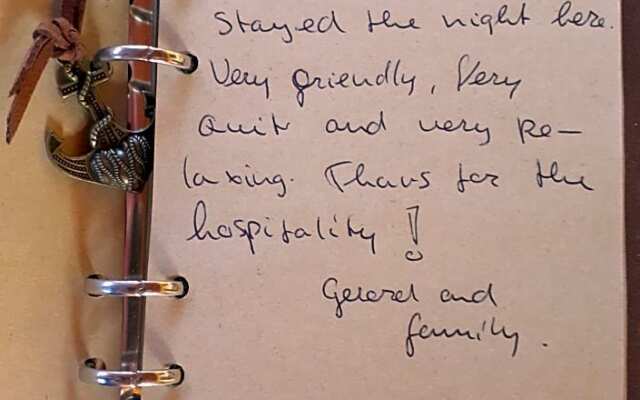 Stayed the night here.
Very friendly, Very
Quit and very Re-
laxing. Thans for the
hospitality!
Gerard and
family.